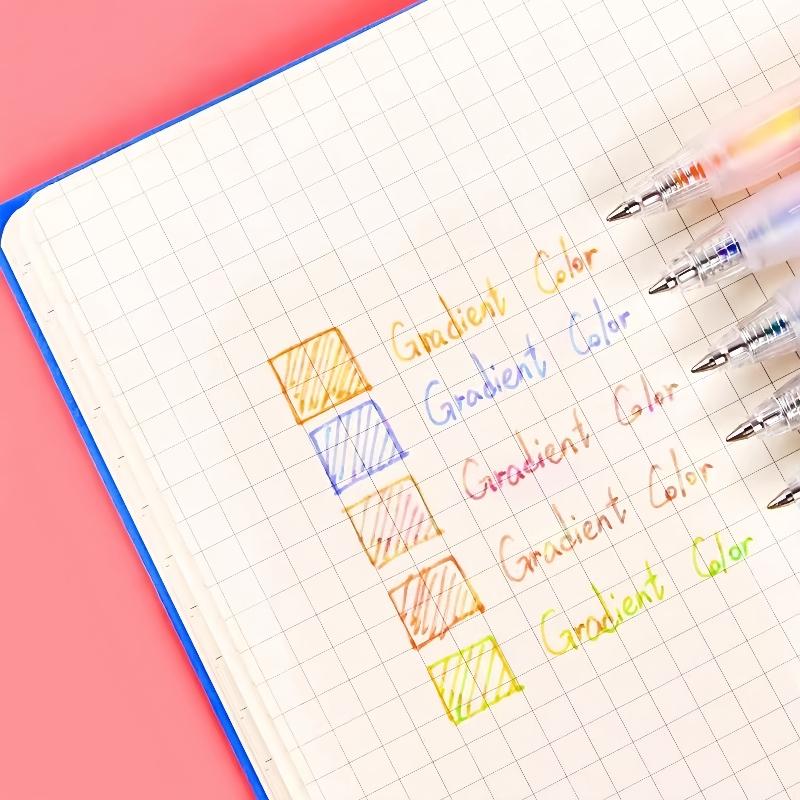 Gradient Color
Gradient Color
Gradient Color
Gradient Color
Gradient Color